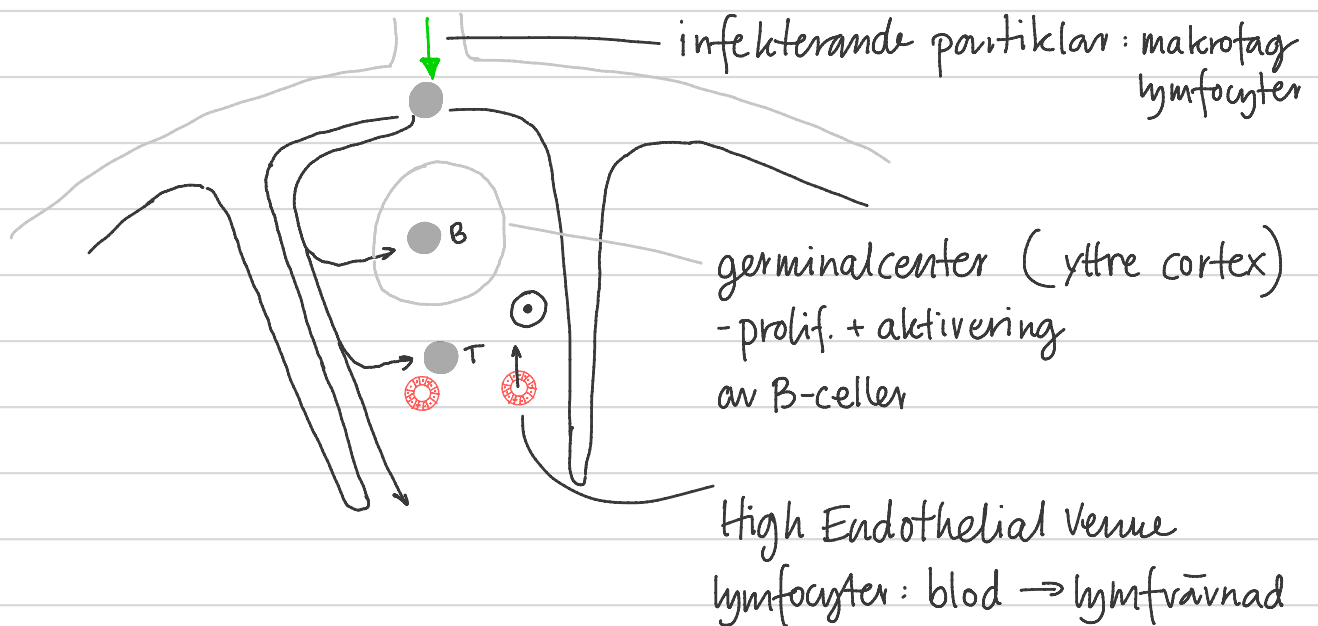 infekterande partiklar : makrofag
lymfocyter
B
germinalcenter (yttre cortex)
- prolif. + aktivering
T
av B-celler
High Endothelial Venue
lymfocyter : blod → lymfvävnad